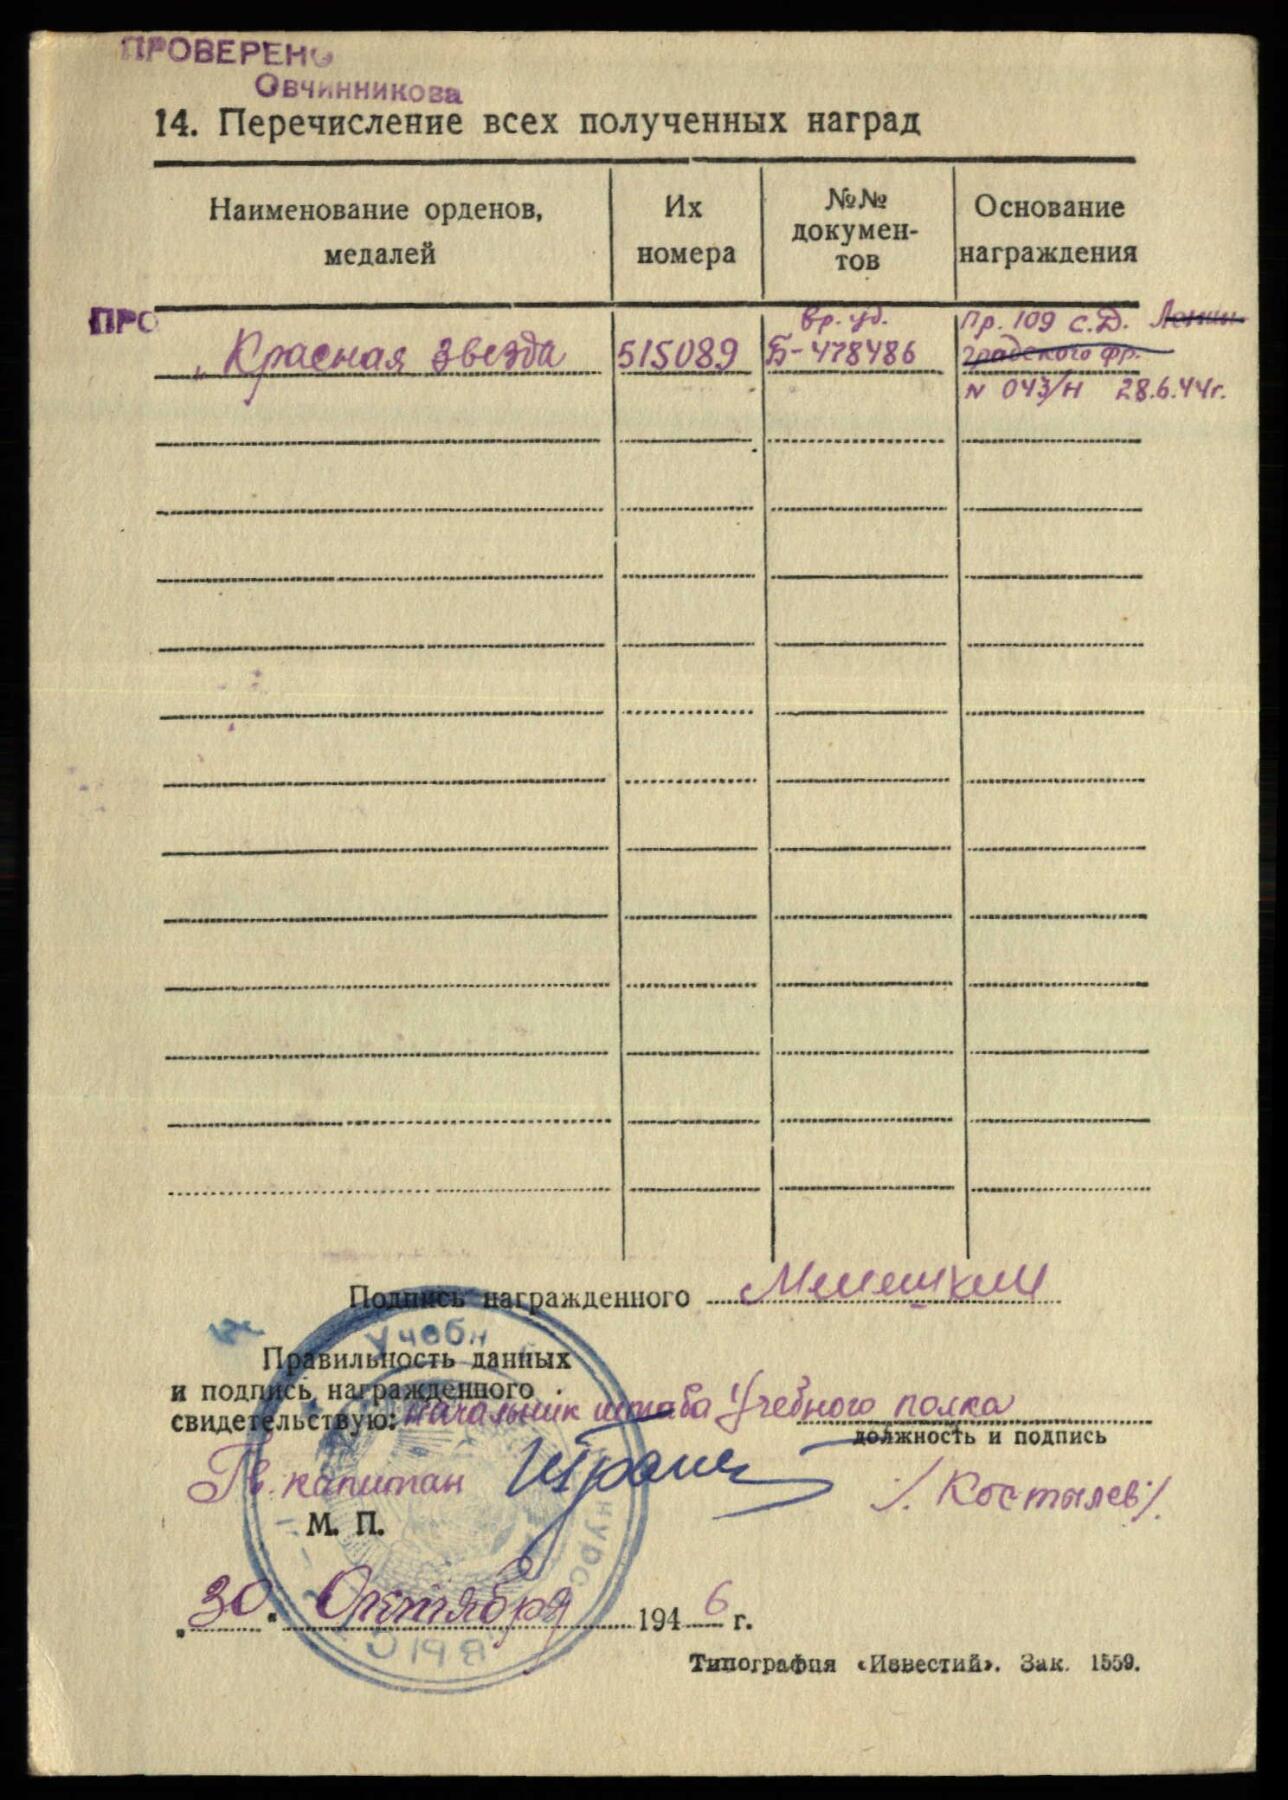 ПРОВЕРЕНО
Овчинникова
14. Перечисление всех полученных наград
Наименование орденов, медалей
Их номера
№№ докумен-тов
Основание награждения
ПРО
Красная звезда 515089 вр. уд. Б-478486 Пр. 109 с.Д. Ленин-
градского фр.
N 043/Н 28.6.44г.
Подпись награжденного
Учебн
Правильность данных
и подпись награжденного
свидетельствую: начальник штаба Учебного полка
должность и подпись
Гв. капитан /Костылев/.
М. П.
"30" Октября 1946 г.
Типография «Известий». Зак. 1559.